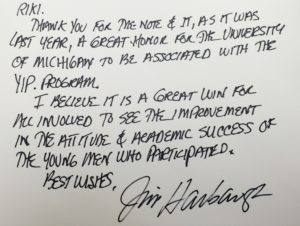 RIKI.
THANK YOU FOR THE NOTE & IT, AS IT WAS
LAST YEAR, A GREAT HONOR FOR THE UNIVERSITY
OF MICHIGAN TO BE ASSOCIATED WITH THE
YIP. PROGRAM.
I BELIEVE IT IS A GREAT WIN FOR
ALL INVOLVED TO SEE THE IMPROVEMENT
IN THE ATTITUDE & ACADEMIC SUCCESS OF
THE YOUNG MEN WHO PARTICIPATED.
BEST WISHES,
Jim Harbaugh